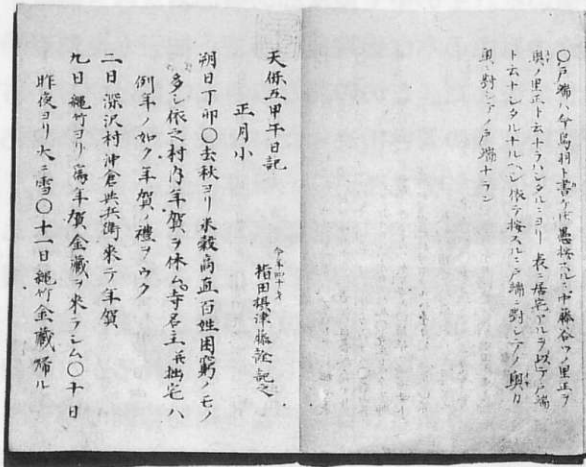 〇戸端ハ今鳥羽ト書ケ𪜈愚按スルニ中藤谷ツノ里正ヲ
奥ノ里正ト云ナラハシタルニヨリ 表ニ居宅アルヲ以テ戸端
ト云ナシタルナルベシ 依テ按スルニ戸端ニ對シテノ奥カ
奥ニ對シテノ戸端ナラン
天保五甲午日記
今年四十才
指田摂津藤詮記之
正月小
朔日丁卯〇去秋ヨリ米穀高直百姓困窮ノモノ
多シ依之村内年賀ヲ休ム寺名主并拙宅ハ
例年ノ如ク年賀ノ禮ヲウク
二日 深沢村沖倉与兵衛来テ年賀
九日 縄竹ヨリ為年賀金蔵ヲ来ラシム〇十日
昨夜ヨリ大ニ雪〇十一日縄竹金蔵帰ル